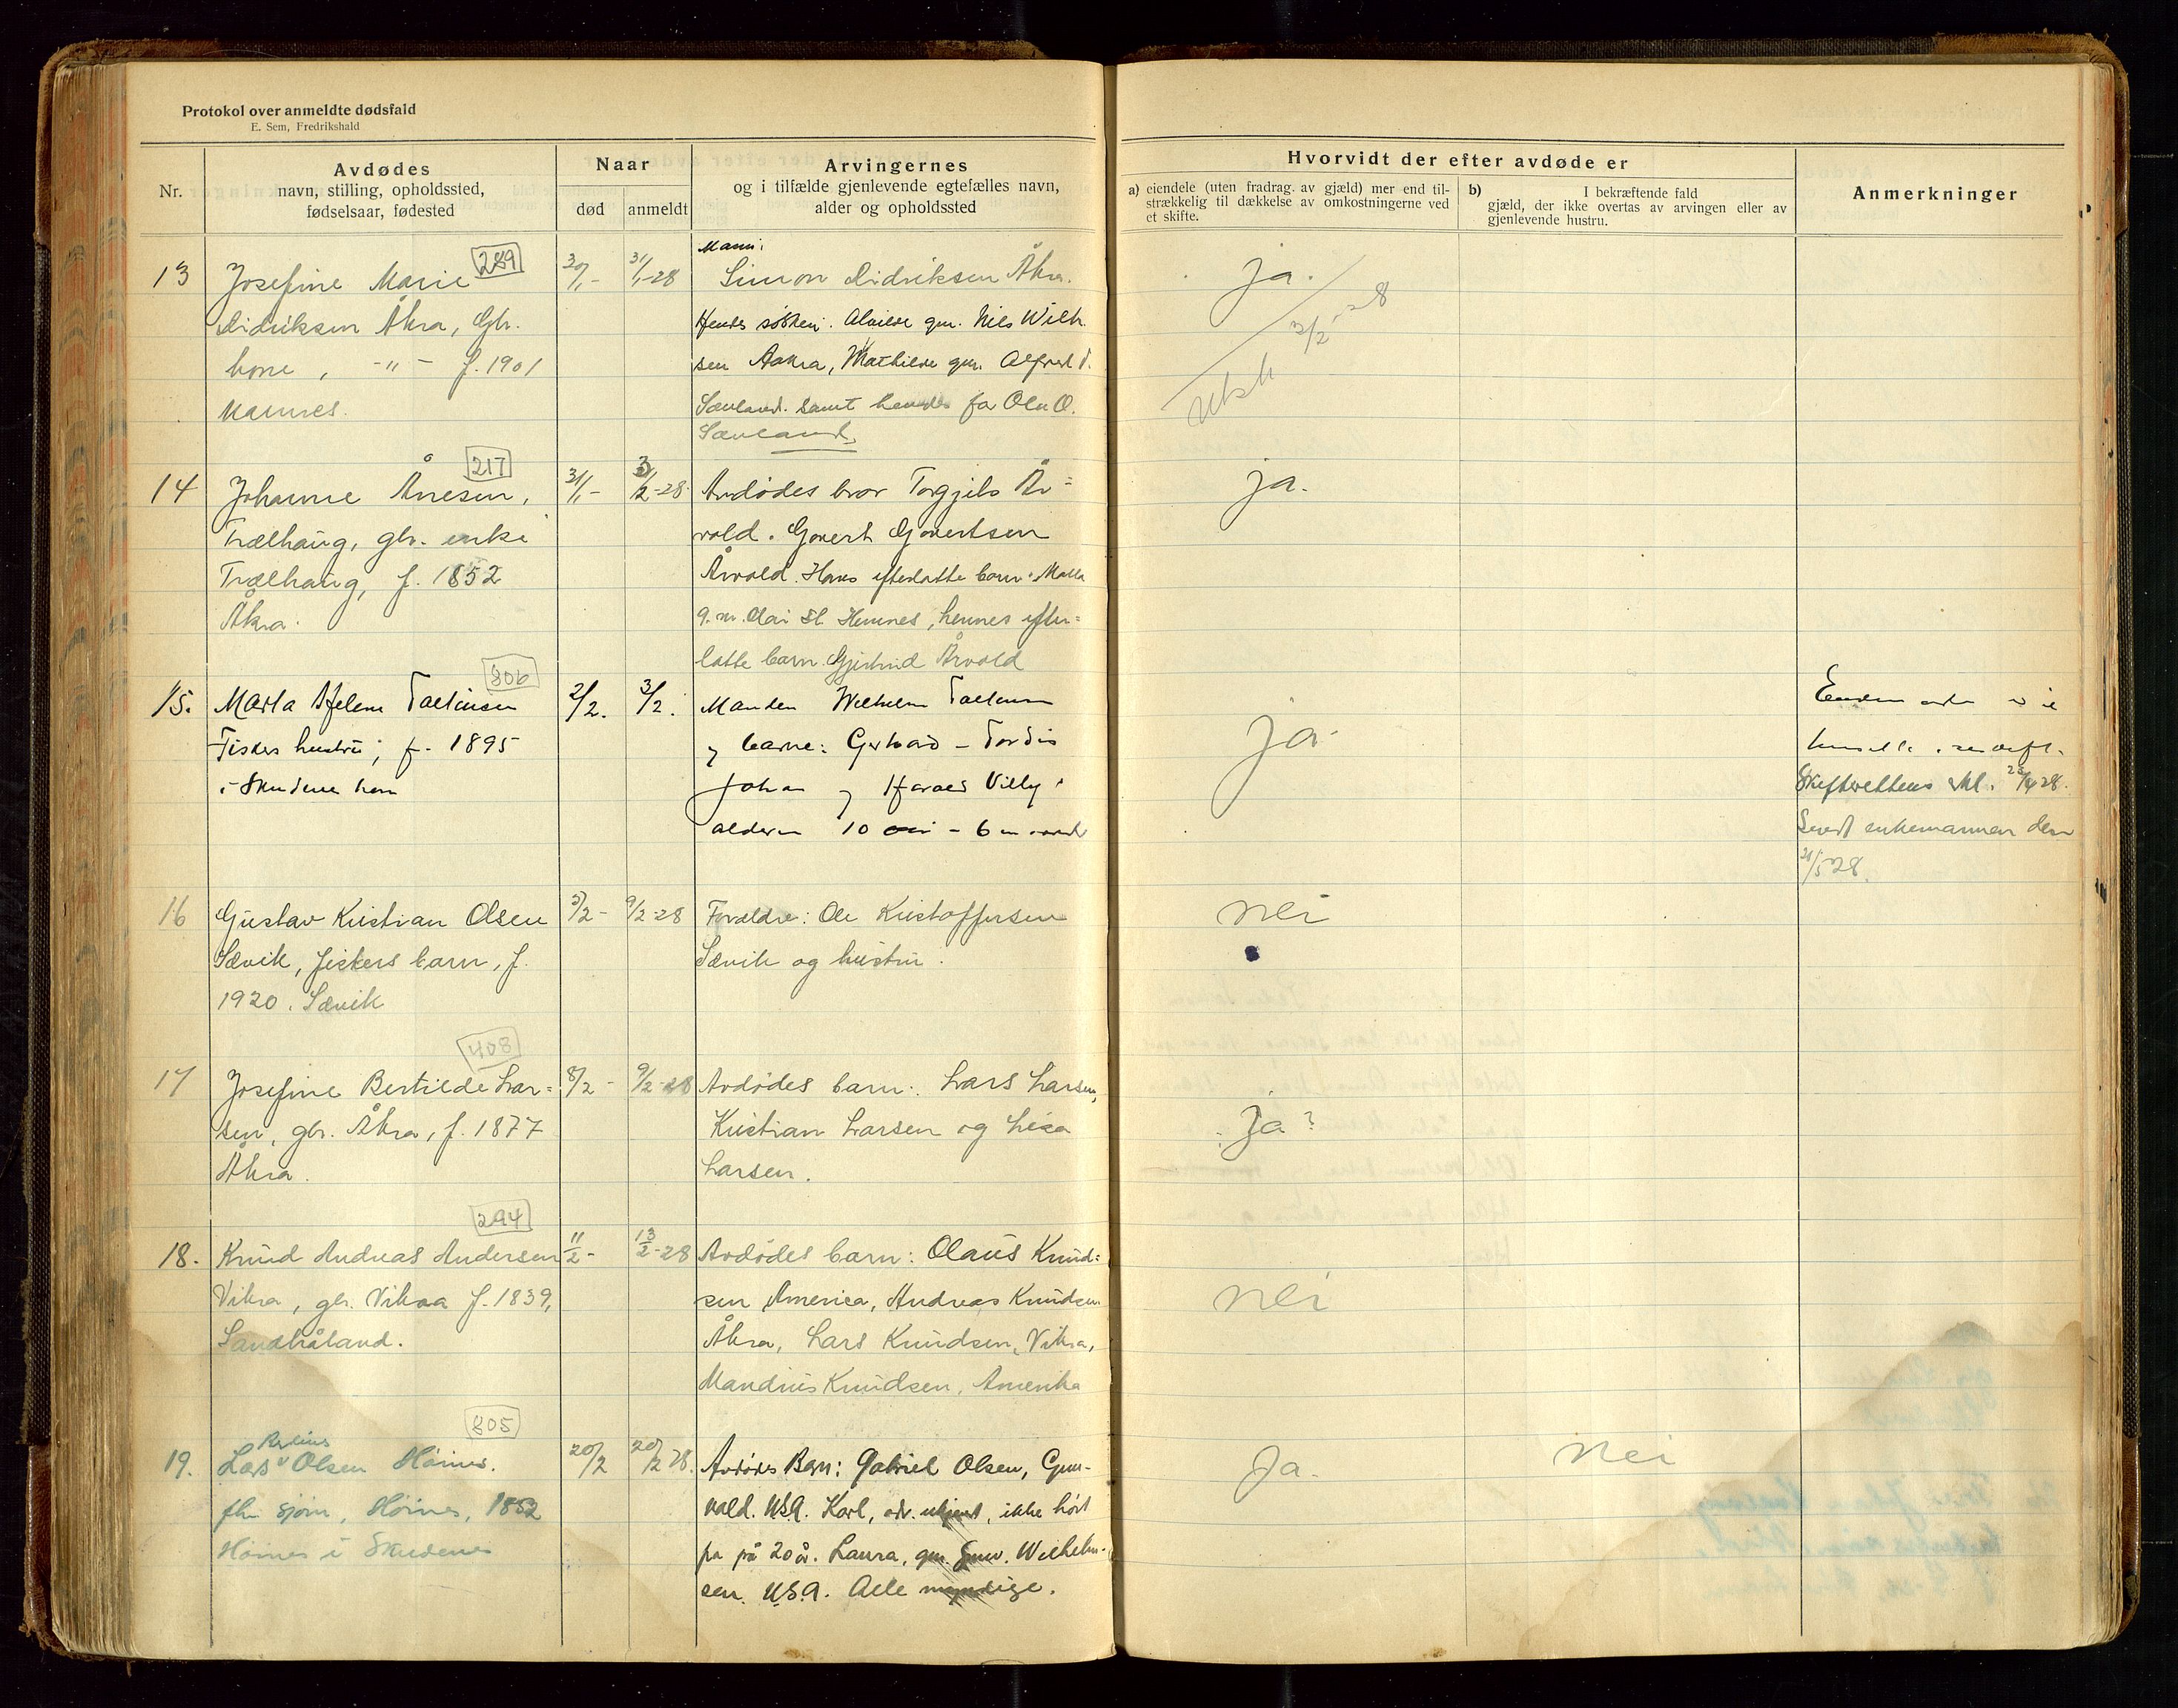 Protokol over anmeldte dødsfald
E. Sem, Fredrikshald
Nr.
Avdødes
navn, stilling, opholdssted,
fødselsaar, fødested
Naar
død
anmeldt
Arvingernes
og i tilfælde gjenlevende egtefælles navn,
alder og opholdssted
Hvorvidt der efter avdøde er
a) eiendele (uten fradrag. av gjæld) mer end til-
strækkelig til dækkelse av omkostningerne ved
et skifte.
b) I bekræftende fald
gjæld, der ikke overtas av arvingen eller av
gjenlevende hustru.
Anmerkninger
13
289
Josefine Marie
Didriksen Åkra, Gbr.
kone, -"- f. 1901
30/1 -
31/1-28
Mann:
Simon Didriksen Åkra.
Hendes søsken: Alvilde gm. Nils Wilh.
sen Aakra, Mathilde gm. Alfred
Sævland. samt hendes far Ola O.
Sævland.
ja.
3/2-28
14
217
Johanne Ånesen,
Trælhaug, gbr. enke
Trælhaug, f. 1852
Åkra.
31/1 -
3/2-28
Avdødes bror Torgjils År=
vold. Govert Govertsen
Årvold. Hans efterlatte barn: Malla
hennes efter=
latte barn. Årvold
ja.
15.
806
Marta Helene
Fiskers hustru; f. 1895
i Skudenehavn
2/2.
3/2.
Manden Wilhelm
barn: Gerhard - Tordis
Johan og Harald Villy
alderen 10 - 6
ja
Skifterettens
Sendt enkemannen den
21/5 28.
16
Gustav Kristian Olsen
Sævik, fiskers barn, f.
1920. Sævik
5/2 -
9/2-28
Forældre: Ole Kristoffersen
Sævik og hustru.
nei
17
408
Josefine Bertilde Lar=
sen, gbr. Åkra, f. 1877
Åkra.
8/2 -
9/2-28
Avdødes barn: Lars Larsen,
Kristian Larsen og Lisa
Larsen.
ja?
18.
294
Knud Andreas Andersen
Vikra, gbr. Vikra f. 1839,
Sandhåland.
11/2 -
13/2-28
Avdødes barn: Olaus Knud=
sen America, Andreas Knudsen
Åkra, Lars Knudsen, Vikra,
Mandius Knudsen, Amerika
nei
19.
805
Lars Olsen Høines.
fhv sjøm, Høines, 1852
Høines i Skudenes
20/2
20/2 28.
Avdødes Barn: Gabriel Olsen, Gun-
vald. USA. Karl, adr. ukjent, ikke hørt
fra på 20 år. Laura, gm. Gunv. Wilhelm-
sen. USA. Alle myndige.
Ja.
nei